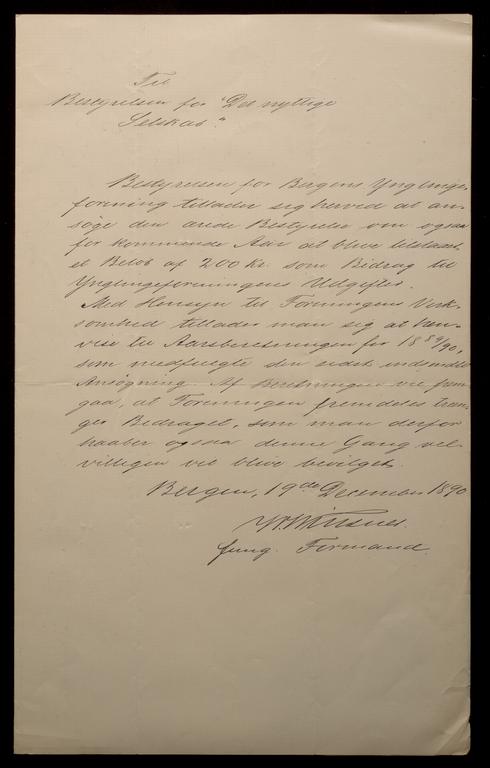 Til
Bestyrelsen for "Det nyttige
Selskab".
Bestyrelsen for Bergens Ynglinge-
forening tillader sig herved at an-
søge den ærede Bestyrelse om ogsaa
for kommende Aar at blive tilstaaet
et Beløb af 200 Kr. som Bidrag til
Ynglingeforeningens Udgifter.
Med Hensyn til Foreningens Virk-
somhed tillader man sig at hen-
vise til Aarsberetningen for 1889/90,
som medfulgte den sidst indsendte
Ansøgning. Af Beretningen vil frem-
gaa, at Foreningen fremdeles træn-
ger Bidraget, som man derfor
haaber ogsaa denne Gang vel-
villigen vil blive bevilget.
Bergen, 19de December 1890
fung. Formand.